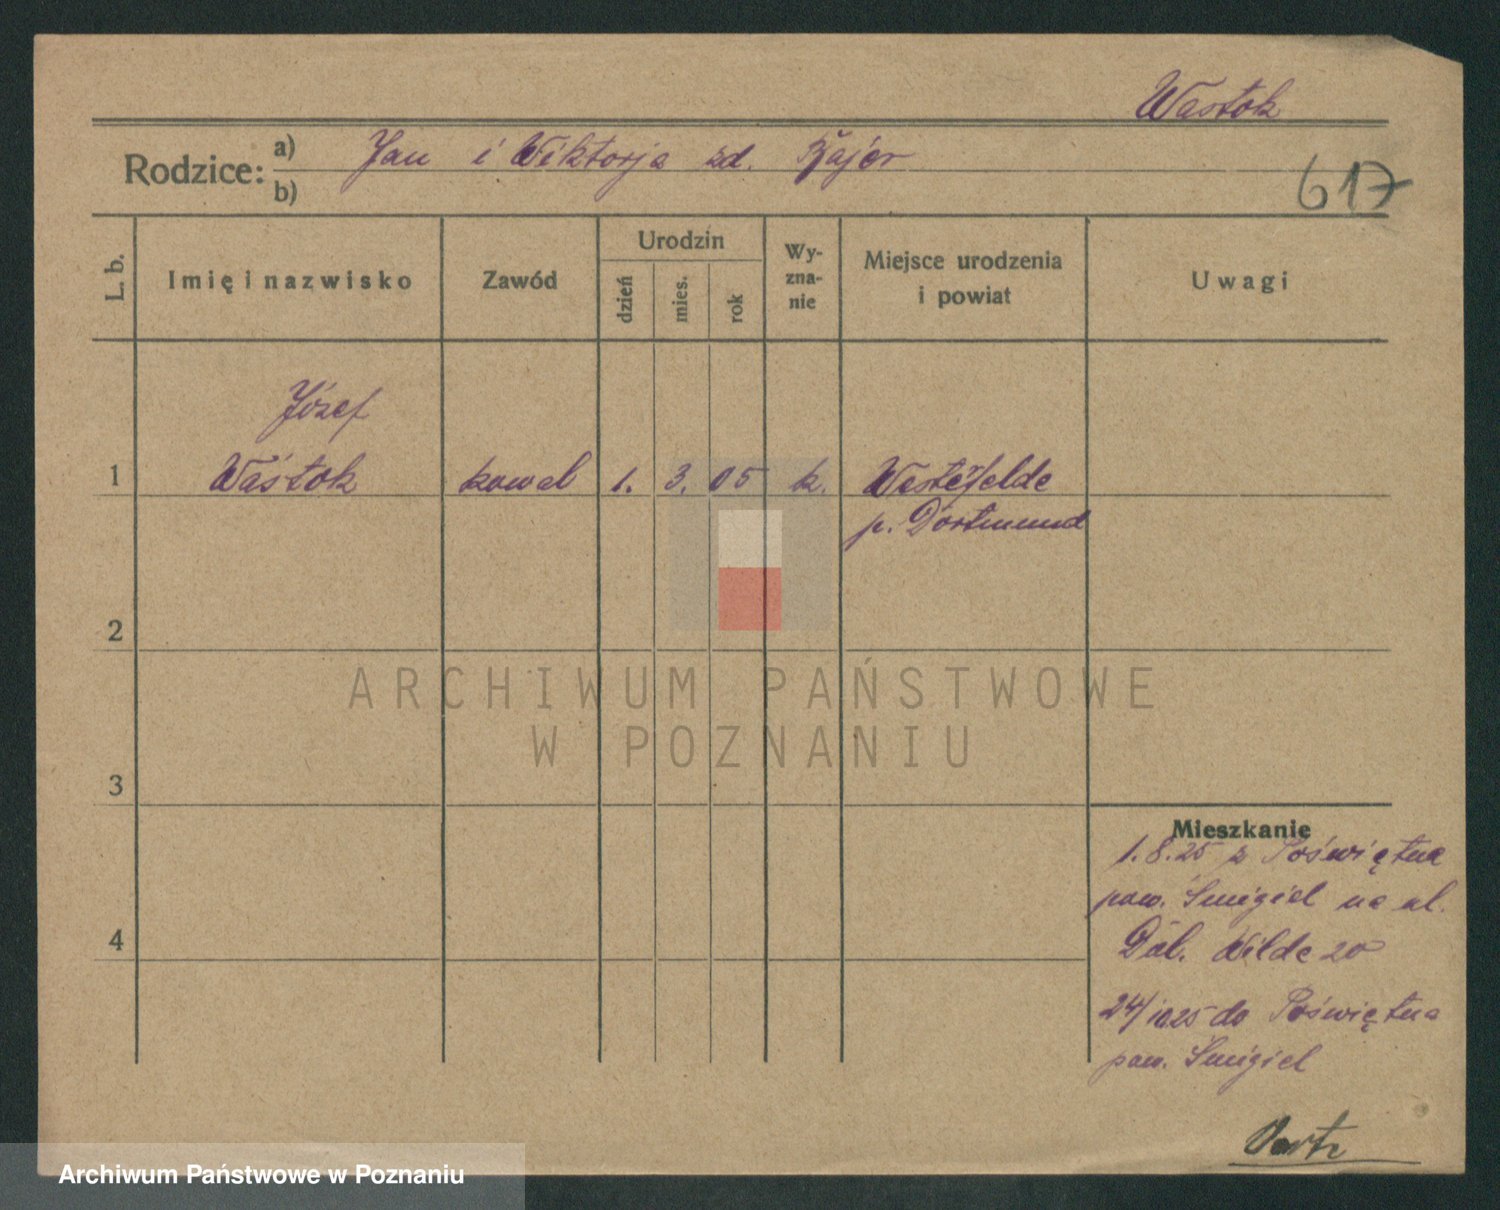 Wastok
Rodzice: a) Jan i Wiktorja zd.
b)
617
L. b.
Imię i nazwisko
Zawód
Urodzin
dzień
mies.
rok
Wy-
zna-
nie
Miejsce urodzenia
i powiat
Uwagi
Józef
1 Waśtok kowal 1. 3. 05 k. Westerfelde
p. Dortmund
2
3
4
Mieszkanie
1.8.25 z Poświętna
pow. Śmigiel na ul.
Dol. Wilda 20
24/10 25 do Poświętna
pow. Śmigiel
ARCHIWUM PAŃSTWOWE
W POZNANIU
Archiwum Państwowe w Poznaniu